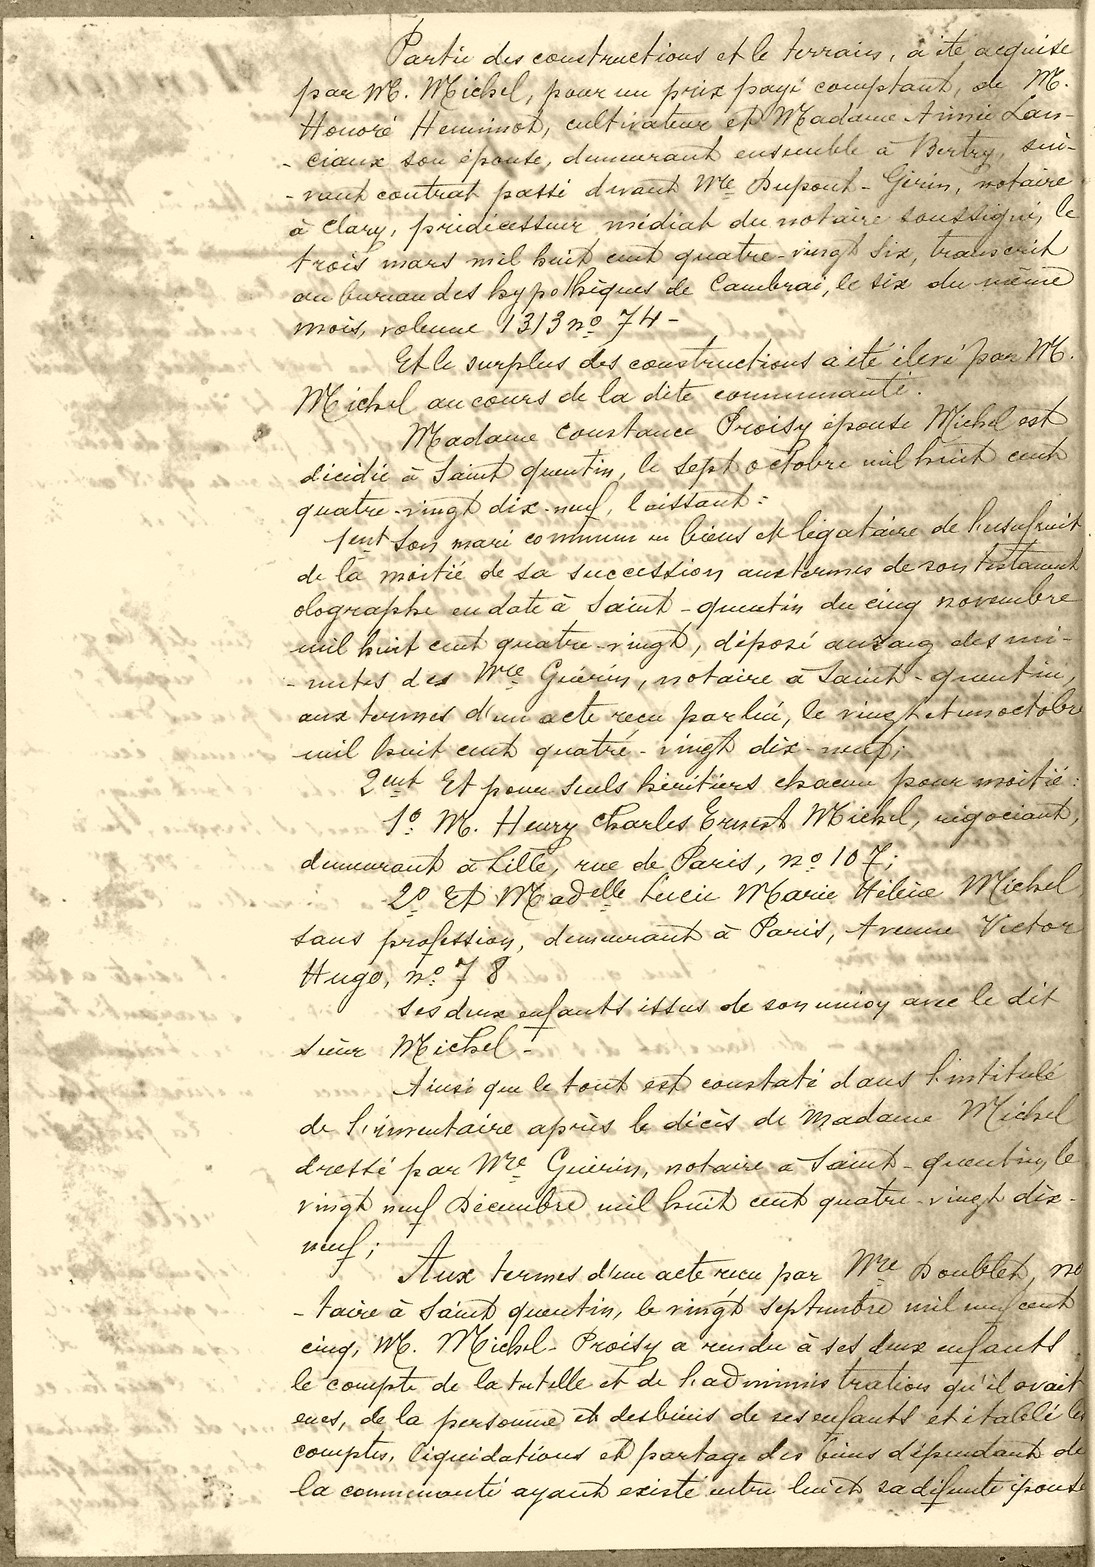 Partie des constructions et le terrain, a été acquise
par M. Michel, pour un prix payé comptant, de M.
Honoré Heminot, cultivateur et Madame Aimée Lan-
- ciaux son épouse, demeurant ensemble à Bertry, sui-
- vant contrat passé devant Mre Dupont - Girin, notaire
à Clary, prédécesseur médiat du notaire soussigné, le
trois mars mil huit cent quatre-vingt six, transcrit
au bureau des hypothèques de Cambrai, le six du même
mois, volume 1313 no 74 -
Et le surplus des constructions a été élevé par M.
Michel au cours de la dite communauté.
Madame Constance Proisy épouse Michel est
décédée à Saint quentin, le sept octobre mil huit cent
quatre-vingt dix-neuf, laissant :
1ent Son mari commun en biens et légataire de l'usufruit
de la moitié de sa succession aux termes de son testament
olographe en date à Saint - quentin du cinq novembre
mil huit cent quatre-vingt, déposé au rang des mi-
- nutes des Mre Guérin, notaire à Saint - quentin,
aux termes d'un acte recu par lui, le vingt et un octobre
mil huit cent quatre - vingt dix - neuf;
2ent Et pour seuls héritiers chacun pour moitié :
1o M. Henry Charles Ernest Michel, négociant,
demeurant à Lille, rue de Paris, no 107;
2o Et Madelle Lucie Marie Hélène Michel
sans profession, demeurant à Paris, Avenue Victor
Hugo, no 78
Ses deux enfants issus de son union avec le dit
sieur Michel -
Ainsi que le tout est constaté dans l'intitulé
de l'inventaire après le décès de Madame Michel
dressé par Mre Guérin, notaire à Saint - quentin, le
vingt neuf Décembre mil huit cent quatre - vingt dix -
neuf;
Aux termes d'un acte recu par Mre Doublet, no
- taire à Saint quentin, le vingt septembre mil neuf cent
cinq, M. Michel - Proisy a rendu à ses deux enfants
le compte de la tutelle et de l'administration qu'il avait
eues, de la personne et des biens de ses enfants et établi les
comptes, liquidations et partage des biens dépendant de
la communauté ayant existé entre lui et sa défunte épouse